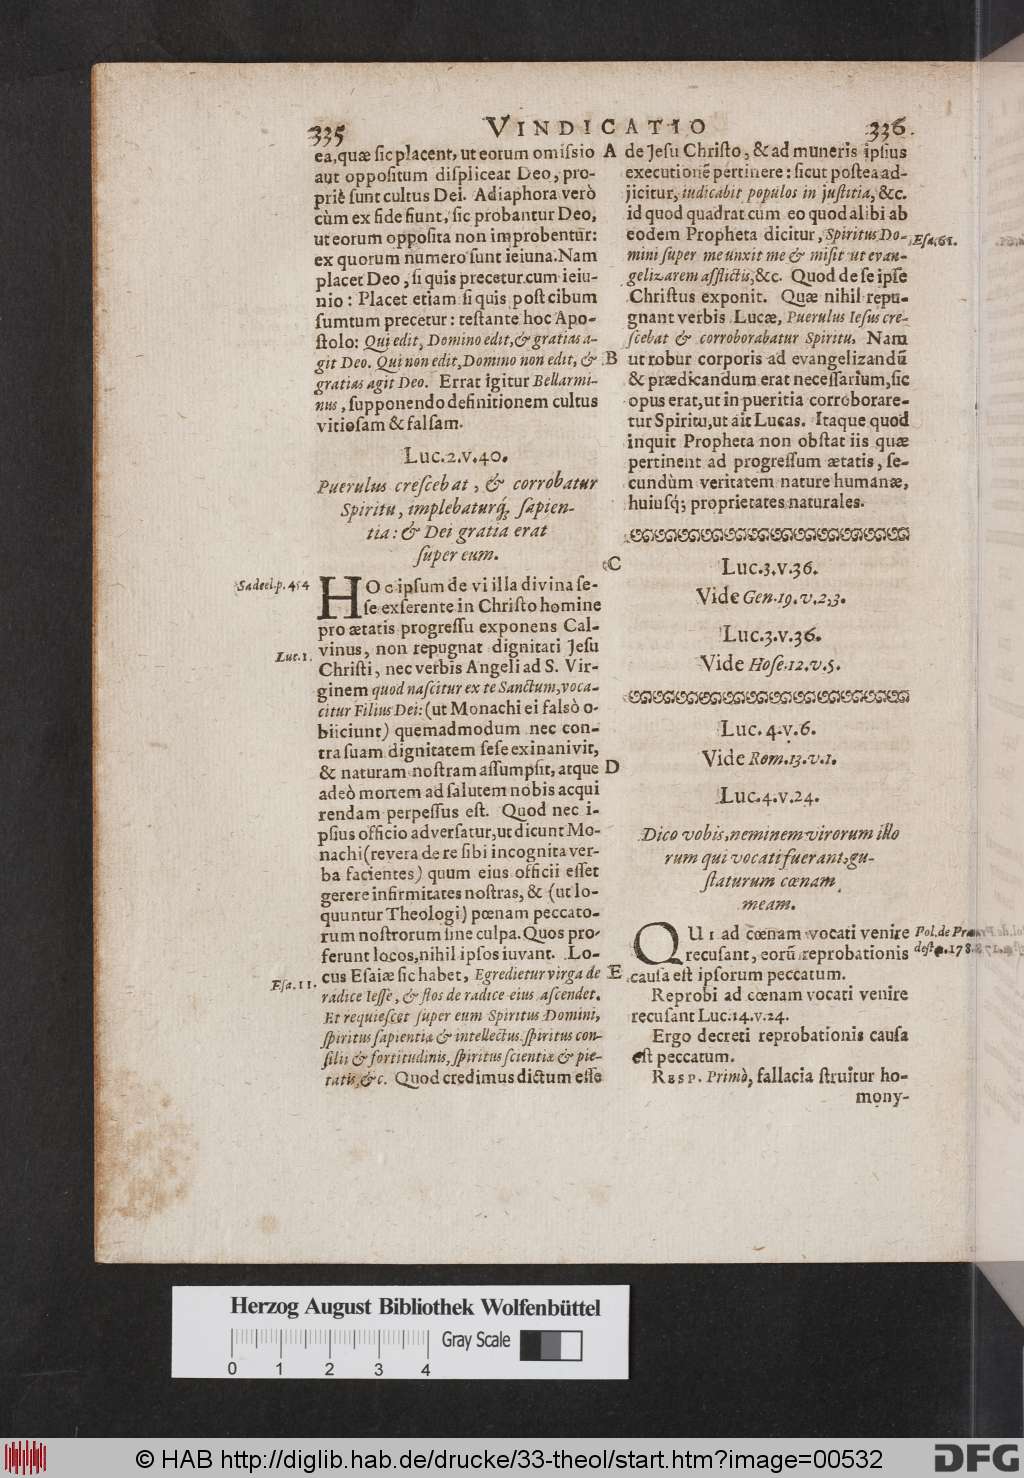 335
VINDICATIO
336.
ea, quæ sic placent, ut eorum omissio
aut oppositum displiceat Deo, pro-
priè sunt cultus Dei. Adiaphora verò
cùm ex fide fiunt, sic probantur Deo,
ut eorum opposita non improbentur:
ex quorum numero sunt ieiuna. Nam
placet Deo, si quis precetur cum ieiu-
nio: Placet etiam si quis post cibum
sumtum precetur: testante hoc Apo-
stolo: Qui edit, Domino edit, & gratias a-
git Deo. Qui non edit, Domino non edit, &
gratias agit Deo. Errat igitur Bellarmi-
nus, supponendo definitionem cultus
vitiosam & falsam.
Luc. 2. v. 40.
Puerulus crescebat, & corrobatur
Spiritu, implebaturq́; sapien-
tia: & Dei gratia erat
super eum.
Sadeel. p. 454
HOc ipsum de vi illa divina se-
se exserente in Christo homine
pro ætatis progressu exponens Cal-
Luc. 1.
vinus, non repugnat dignitati Jesu
Christi, nec verbis Angeli ad S. Vir-
ginem quod nascitur ex te Sanctum, voca-
citur Filius Dei: (ut Monachi ei falsò o-
biiciunt) quemadmodum nec con-
tra suam dignitatem sese exinanivit,
& naturam nostram assumpsit, atque
adeò mortem ad salutem nobis acqui
rendam perpessus est. Quod nec i-
psius officio adversatur, ut dicunt Mo-
nachi (revera de re sibi incognita ver-
ba facientes) quum eius officii esset
gerere infirmitates nostras, & (ut lo-
quuntur Theologi) pœnam peccato-
rum nostrorum sine culpa. Quos pro-
ferunt locos, nihil ipsos iuvant. Lo-
Esa. 11.
cus Esaiæ sic habet, Egredietur virga de
radice Iesse, & flos de radice eius ascendet.
Et requiescet super eum Spiritus Domini,
spiritus sapientiæ & intellectus. spiritus con-
silii & fortitudinis, spiritus scientiæ & pie-
tatis, &c. Quod credimus dictum esse
A
B
C
D
E
de Jesu Christo, & ad muneris ipsius
executionẽ pertinere: sicut postea ad-
jicitur, iudicabit populos in justitia, &c.
id quod quadrat cum eo quod alibi ab
eodem Propheta dicitur, Spiritus Do-
Esa. 61.
mini super me unxit me & misit ut evan-
gelizarem afflictis, &c. Quod de se ipse
Christus exponit. Quæ nihil repu-
gnant verbis Lucæ, Puerulus Iesus cre-
scebat & corroborabatur Spiritu. Nam
ut robur corporis ad evangelizandũ
& prædicandum erat necessarium, sic
opus erat, ut in pueritia corroborare-
tur Spiritu, ut ait Lucas. Itaque quod
inquit Propheta non obstat iis quæ
pertinent ad progressum ætatis, se-
cundùm veritatem nature humanæ,
huiusq́; proprietates naturales.
Luc. 3. v. 36.
Vide Gen. 19. v. 2, 3.
Luc. 3. v. 36.
Vide Hose. 12. v. 5.
Luc. 4. v. 6.
Vide Rom. 13. v. 1.
Luc. 4. v. 24.
Dico vobis, neminem virorum illo
rum qui vocati fuerant, gu-
staturum cœnam
meam.
QUI ad cœnam vocati venire
Pol. de Præ
recusant, eorũ reprobationis
dest. p. 178.
causa est ipsorum peccatum.
Reprobi ad cœnam vocati venire
recusant Luc. 14. v. 24.
Ergo decreti reprobationis causa
est peccatum.
RESP. Primò, fallacia struitur ho-
mony-
Herzog August Bibliothek Wolfenbüttel
Gray Scale
0 1 2 3 4
© HAB http://diglib.hab.de/drucke/33-theol/start.htm?image=00532
DFG